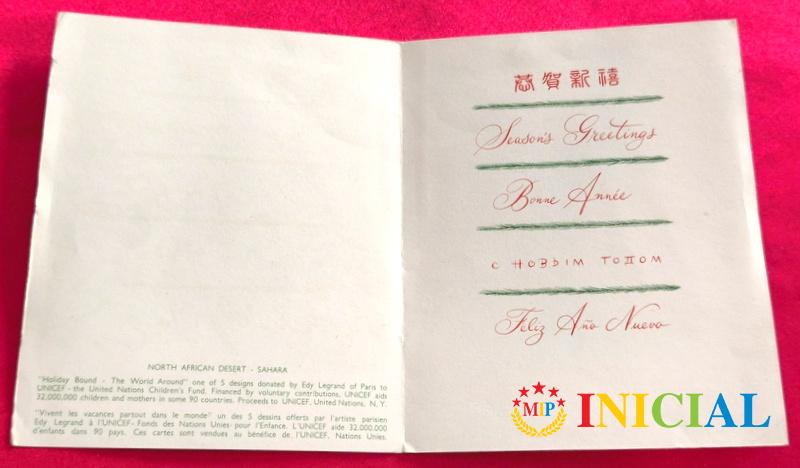 NORTH AFRICAN DESERT - SAHARA
"Holiday Bound - The World Around" one of 5 designs donated by Edy Legrand of Paris to
UNICEF - the United Nations Children's Fund. Financed by voluntary contributions, UNICEF aids
32,000,000 children and mothers in some 90 countries. Proceeds to UNICEF, United Nations, N. Y.
"Vivent les vacances partout dans le monde" un des 5 dessins offerts par l'artiste parisien
Edy Legrand à l'UNICEF - Fonds des Nations Unies pour l'Enfance. L'UNICEF aide 32.000.000
d'enfants dans 90 pays. Ces cartes sont vendues au bénéfice de l'UNICEF, Nations Unies.
恭賀新禧
Season's Greetings
Bonne Année
С НОВЫМ ГОДОМ
Feliz Año Nuevo
MIP INICIAL